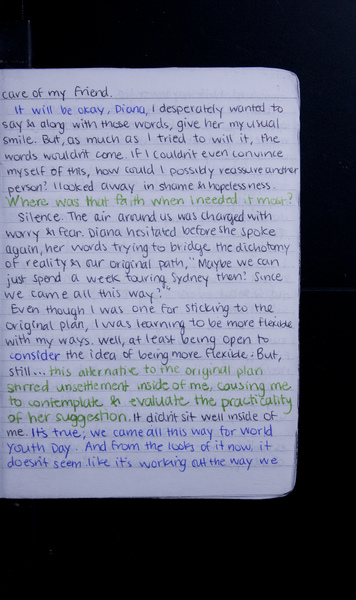 care of my friend.
It will be okay, Diana, I desperately wanted to
say & along with those words, give her my usual
smile. But, as much as I tried to will it, the
words wouldn't come. If I couldn't even convince
myself of this, how could I possibly reassure another
person? I looked away in shame & hopelessness.
Where was that faith when i needed it most?
Silence. The air around us was charged with
worry & fear. Diana hesitated before she spoke
again, her words trying to bridge the dichotomy
of reality & our original path, "Maybe we can
just spend a week touring Sydney then? Since
we came all this way?"
Even though I was one for sticking to the
original plan, I was learning to be more flexible
with my ways. Well, at least being open to
consider the idea of being more flexible. But,
still... this alternative to the original plan
stirred unsettlement inside of me, causing me
to contemplate & evaluate the practicality
of her suggestion. It didn't sit well inside of
me. It's true; we came all this way for World
Youth Day. And from the looks of it now, it
doesn't seem like it's working out the way we